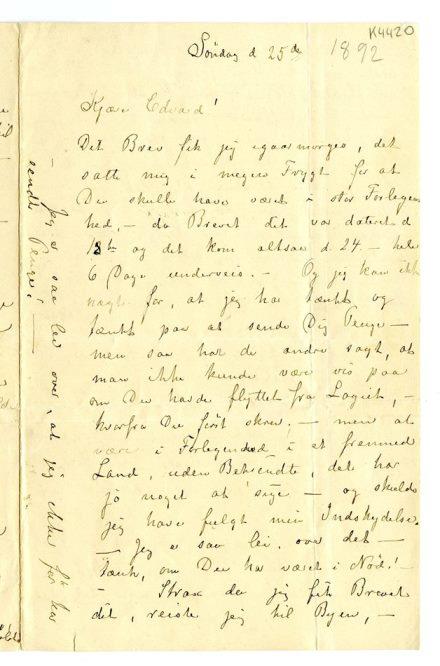 K4420
Søndag d 25de 1892
Kjære Edvard!
Dit Brev fik jeg igaarmorges, det
satte mig i megen Frygt for at
Du skulle have været i stor Forlegen
hed, — da Brevet dit var dateret d
18de og det kom altsaa d. 24. — hele
6 Dage underveis. — Og jeg kan ikke
nægte for, at jeg har tænkt og
tænkt paa at sende Dig Penge —
men saa har de andre sagt, at
man ikke kunde være vis paa
om Du havde flyttet fra Logiet, —
hvorfra Du først skrev. — men at
være i Forlegenhed i et fremmed
Land, uden Bekjendte, det har
jo noget at sige — og skulde
jeg have fulgt min Indskydelse.
— Jeg er saa lei over det —
tænk, om Du har været i Nød! —
— Strax da jeg fik Brevet
dit, reiste jeg til Byen, —
— Jeg er saa lei over, at jeg ikke før har
sendt Penge! —